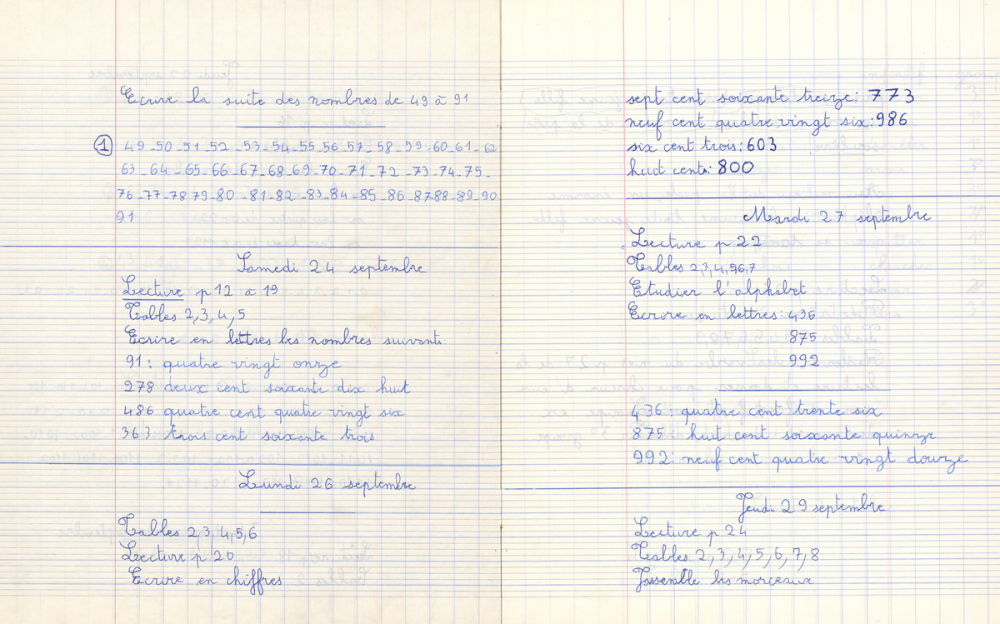 Ecrire la suite des nombres de 49 à 91
① 49-50-51-52-53-54-55-56-57-58-59-60-61-62
63-64-65-66-67-68-69-70-71-72-73-74-75-
76-77-78 79-80-81-82-83-84-85-86 87 88-89-90
91
Samedi 24 septembre
Lecture p 12 a 19
Tables 2,3,4,5
Ecrire en lettres les nombres suivants:
91: quatre vingt onze
278 deux cent soixante dix huit
486 quatre cent quatre vingt six
363 trois cent soixante trois
Lundi 26 septembre
Tables 2 3,4,5,6
Lecture p 20
Ecrire en chiffres
sept cent soixante treize: 773
neuf cent quatre vingt six: 986
six cent trois: 603
huit cents: 800
Mardi 27 septembre
Lecture p 22
Tables 2,3,4,5,6,7
Etudier l'alphabet
Ecrire en lettres: 436
875
992
436: quatre cent trente six
875: huit cent soixante quinze
992: neuf cent quatre vingt douze
Jeudi 29 septembre
Lecture p 24
Tables 2,3,4,5,6,7,8
J'assemble les morceaux